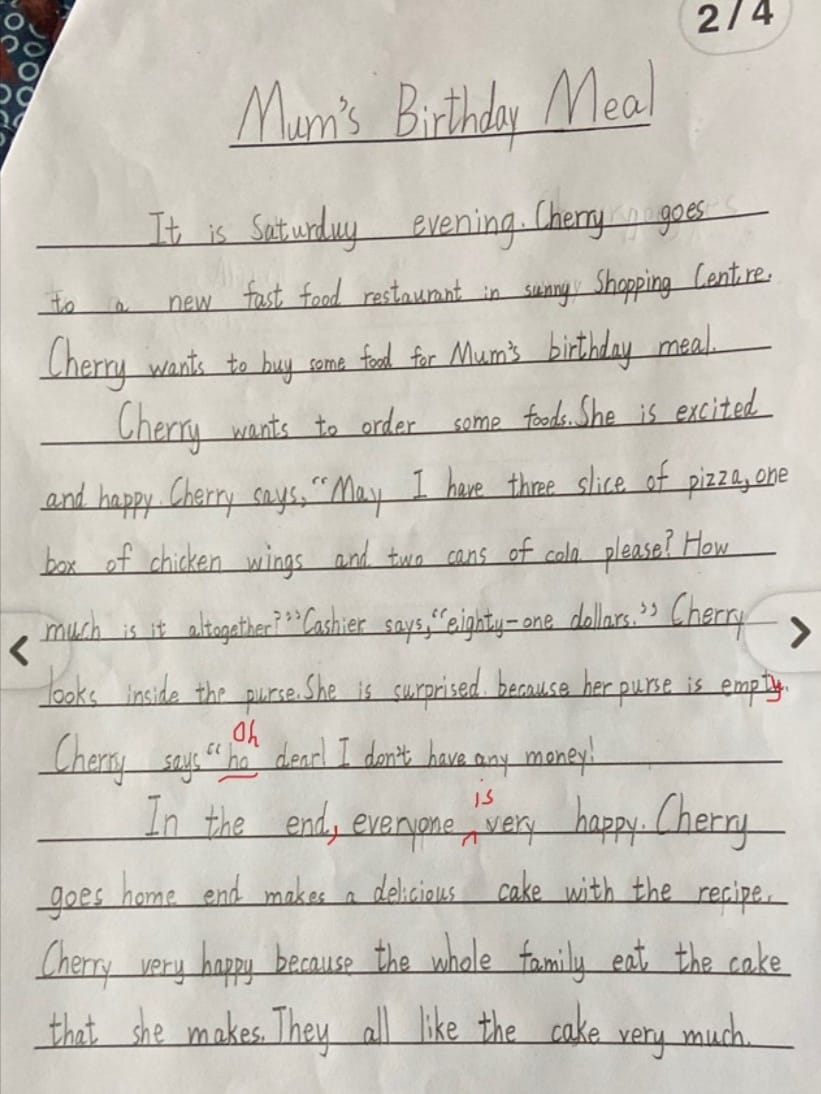 2/4
Mum's Birthday Meal
It is Saturduy evening. Cherry goes
to a new fast food restaurant in sunny Shopping Centre.
Cherry wants to buy some food for Mum's birthday meal.
Cherry wants to order some foods. She is excited
and happy. Cherry says, "May I have three slice of pizza, one
box of chicken wings and two cans of cola please? How
much is it altogether?" Cashier says, "eighty-one dollars." Cherry
looks inside the purse. She is surprised because her purse is empty.
Oh
Cherry says "ho dear! I don't have any money!
is
In the end, everyone very happy. Cherry
goes home end makes a delicious cake with the recipe.
Cherry very happy because the whole family eat the cake
that she makes. They all like the cake very much.